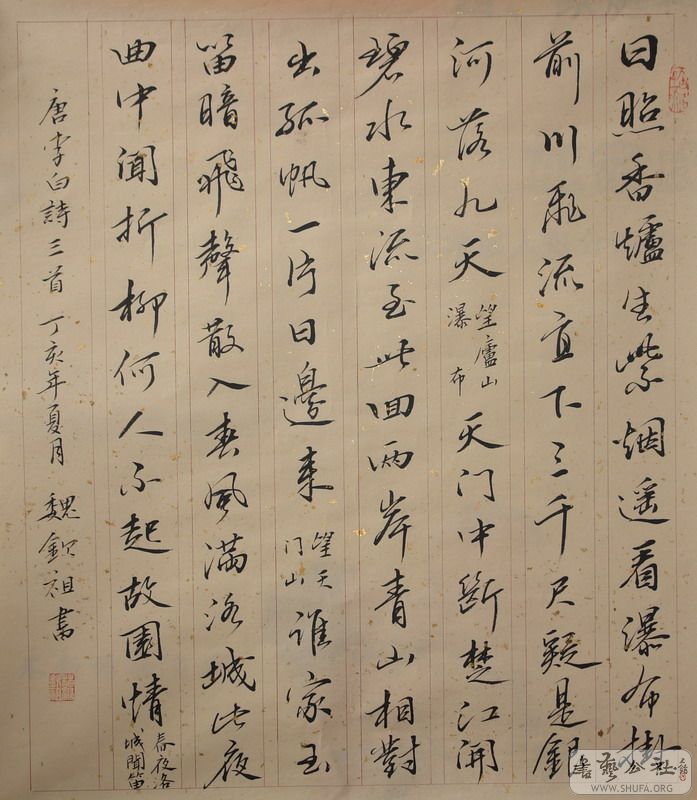 日照香爐生紫烟遥看瀑布掛
前川飛流直下三千尺疑是銀
河落九天望廬山瀑布天门中断楚江開
碧水東流至此回两岸青山相對
出孤帆一片日邊来望天门山誰家玉
笛暗飛聲散入春风滿洛城此夜
曲中闻折柳何人不起故園情春夜洛城聞笛
唐李白詩三首丁亥年夏月魏欽祖書
WWW.SHUFA.ORG